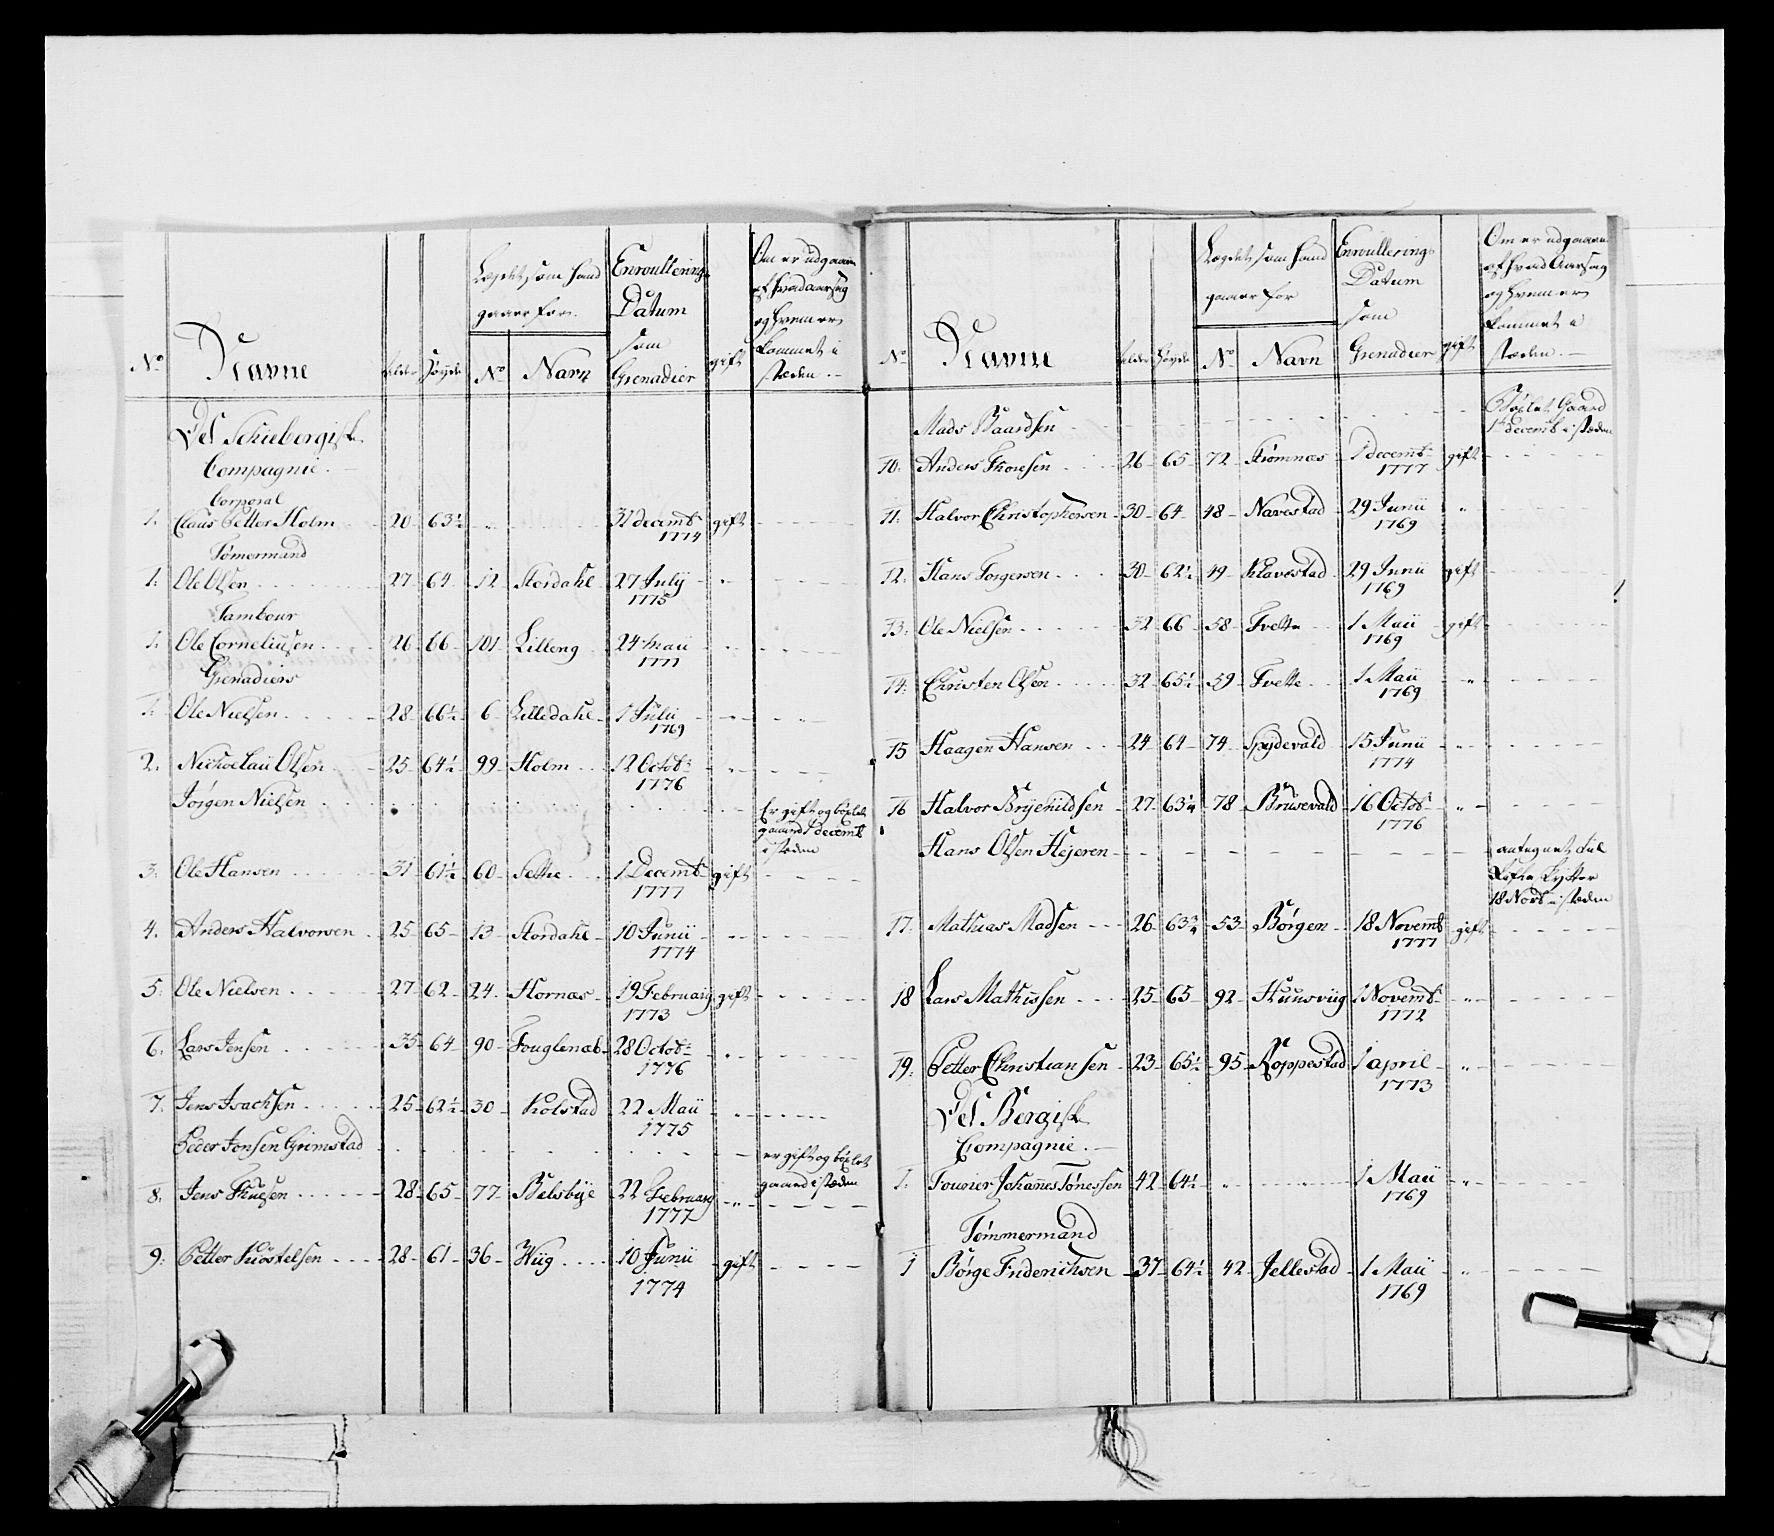 No Navne alder høyde Lægdet som hand gaaer for. No Navn Enroullerings Datum som Grenadier gift Om er udgaaen af hvad aarsag og hvem er kommet i stæden.
Det Schiebergiske
Compagnie.
Corporal
1. Claus Petter Holm 20 63½ " 31 decemb: 1774 gift
Tømermand
1. Ole Olsen 27 64 12 Stordahl 27 July 1775 "
Tambour
1. Ole Corneliusen 26 66 101 Lilleng 24 Maii 1777 "
Grenadiers
1. Ole Nielsen 28 66½ 6 Lilledahl 1 Julii 1769 "
2. Nickolaii Olsen 25 64½ 99 Holm 12 Octob: 1776 "
Jørgen Nielsen Er gift og böxlet gaard 1 decemb i stæden
3. Ole Hansen 31 61½ 60 1 Decemb 1777 gift
4. Anders Halvorsen 25 65 13 Stordahl 10 Junii 1774 "
5. Ole Nielsen 27 62 24 Hornæs 19 February 1773 gift
6. Lars Jensen 35 64 90 Fouglenæb 28 Octob: 1776 "
7. Jens Isachsen 25 62½ 30 Kolstad 22 Maii 1775 "
Peder Jonsen Grimstad er gift og böxlet gaard i stæden
8. Jens 28 65 77 Belsbye 22 February 1777 "
9. Petter Kiöstelsen 28 61 36 Wiig 10 Junii 1774 gift
No Navne alder høyde Lægdet som hand gaaer for No Navn Enroullerings Datum som Grenadier gift Om er udgaaen af hvad Aarsag og hvem er kommet i stæden.
Mads Baardsen Böxlet Gaard 1 decemb i stæden
10. Anders Thoresen 26 65 72 Strömnæs 1 decemb: 1777 gift
11. Halvor Christophersen 30 64 48 Navestad 29 Junii 1769 "
12. Hans Torgersen 30 62½ 49 Klavestad 29 Junii 1769 gift
13. Ole Nielsen 32 66 58 Tvette 1 Maii 1769 gift
14. Christen Olsen 32 65½ 59 Tvette 1 Maii 1769 "
15 Haagen Hansen 24 64 74 Spydevold 15 Junii 1774 "
16 Halvor Brynildsen 27 63¼ 78 Brusevald 16 Octob: 1776 "
Hans Olsen Hejeren antegnet til 18 Novb i stæden
17. Mathias Madsen 26 63¾ 53 Børgen 18 Novemb 1777 gift
18 Lars Mathissen 25 65 92 Huusviig 1 Novemb 1772 "
19. Petter Christiansen 23 65½ 95 Roppestad 1 april 1773 "
Det Bergiske
Compagnie.
1. Fourier Johannes Tønessen 42 64½ " 1 Maii 1769 "
Tømmermand
1 Børge Friderichsen 37 64½ 42 Jellestad 1 Maii 1769 "